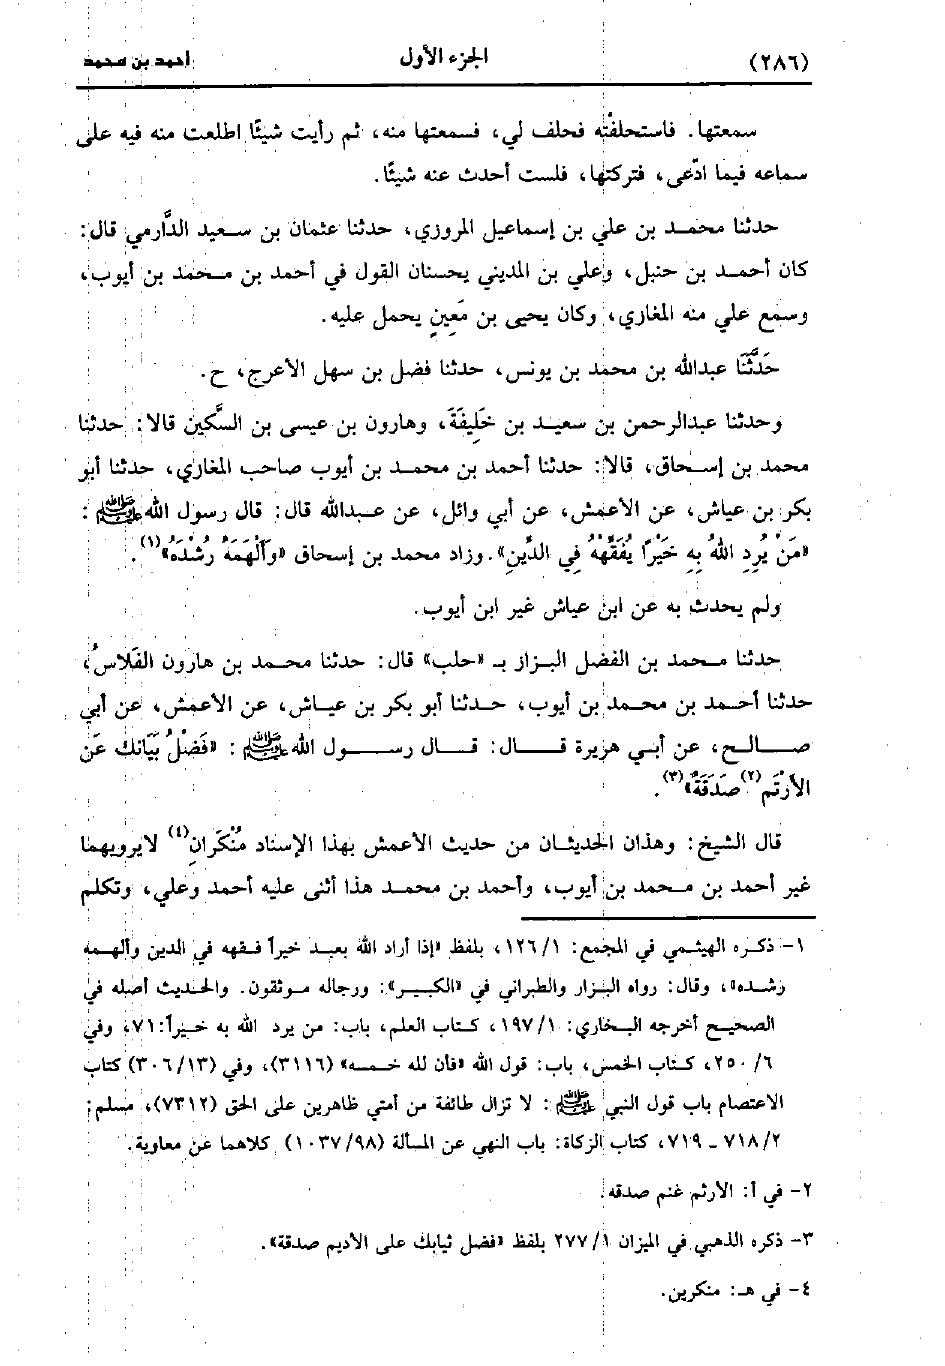 (٢٨٦) الجزء الأول أحمد بن محمد
سمعتها. فاستحلفته فحلف لي، فسمعتها منه، ثم رأيت شيئًا اطلعت منه فيه على
سماعه فيما ادّعى، فتركتها، فلست أحدث عنه شيئًا.
حدثنا محمد بن علي بن إسماعيل المروزي، حدثنا عثمان بن سعيد الدَّارمي قال:
كان أحمد بن حنبل، وعلي بن المديني يحسنان القول في أحمد بن محمد بن أيوب،
وسمع علي منه المغازي، وكان يحيى بن مَعِين يحمل عليه.
حَدَّثَنَا عبدالله بن محمد بن يونس، حدثنا فضل بن سهل الأعرج، ح.
وحدثنا عبدالرحمن بن سعيد بن خَلِيفَةَ، وهارون بن عيسى بن السَّكين قالا: حدثنا
محمد بن إسحاق، قالا: حدثنا أحمد بن محمد بن أيوب صاحب المغازي، حدثنا أبو
بكر بن عياش، عن الأعمش، عن أبي وائل، عن عبدالله قال: قال رسول الله ﷺ :
«مَنْ يُرِدِ اللهُ بِهِ خَيْرًا يُفَقِّهْهُ فِي الدِّينِ». وزاد محمد بن إسحاق «وَأَلْهَمَهُ رُشْدَهُ»(١).
ولم يحدث به عن ابن عياش غير ابن أيوب.
حدثنا محمد بن الفضل البزاز بـ «حلب» قال: حدثنا محمد بن هارون الفَلاسُ،
حدثنا أحمد بن محمد بن أيوب، حدثنا أبو بكر بن عياش، عن الأعمش، عن أبي
صالح، عن أبي هريرة قال: قال رسول الله ﷺ : «فَضْلُ بَيَانك عَن
الأرْثَم(٢) صَدَقَةٌ»(٣).
قال الشيخ: وهذان الحديثان من حديث الأعمش بهذا الإسناد مُنْكَرَانِ(٤) لا يرويهما
غير أحمد بن محمد بن أيوب، وأحمد بن محمد هذا أثنى عليه أحمد وعلي، وتكلم
١- ذكره الهيثمي في المجمع: ١٢٦/١، بلفظ «إذا أراد الله بعبد خيرًا فقهه في الدين وألهمه
رشده»، وقال: رواه البزار والطبراني في «الكبير»: ورجاله موثقون. والحديث أصله في
الصحيح أخرجه البخاري: ١٩٧/١، كتاب العلم، باب: من يرد الله به خيراً: ٧١، وفي
٢٥٠/٦، كتاب الخمس، باب: قول الله «فأن لله خمسه» (٣١١٦)، وفي (٣٠٦/١٣) كتاب
الاعتصام باب قول النبي ﷺ : لا تزال طائفة من أمتي ظاهرين على الحق (٧٣١٢)، مسلم:
٧١٨/٢ ـ ٧١٩، كتاب الزكاة: باب النهي عن المسألة (١٠٣٧/٩٨) كلاهما عن معاوية.
٢- في أ: الأرثم غنم صدقه.
٣- ذكره الذهبي في الميزان ٢٧٧/١ بلفظ «فضل ثيابك على الأديم صدقة».
٤- في هـ: منكرين.